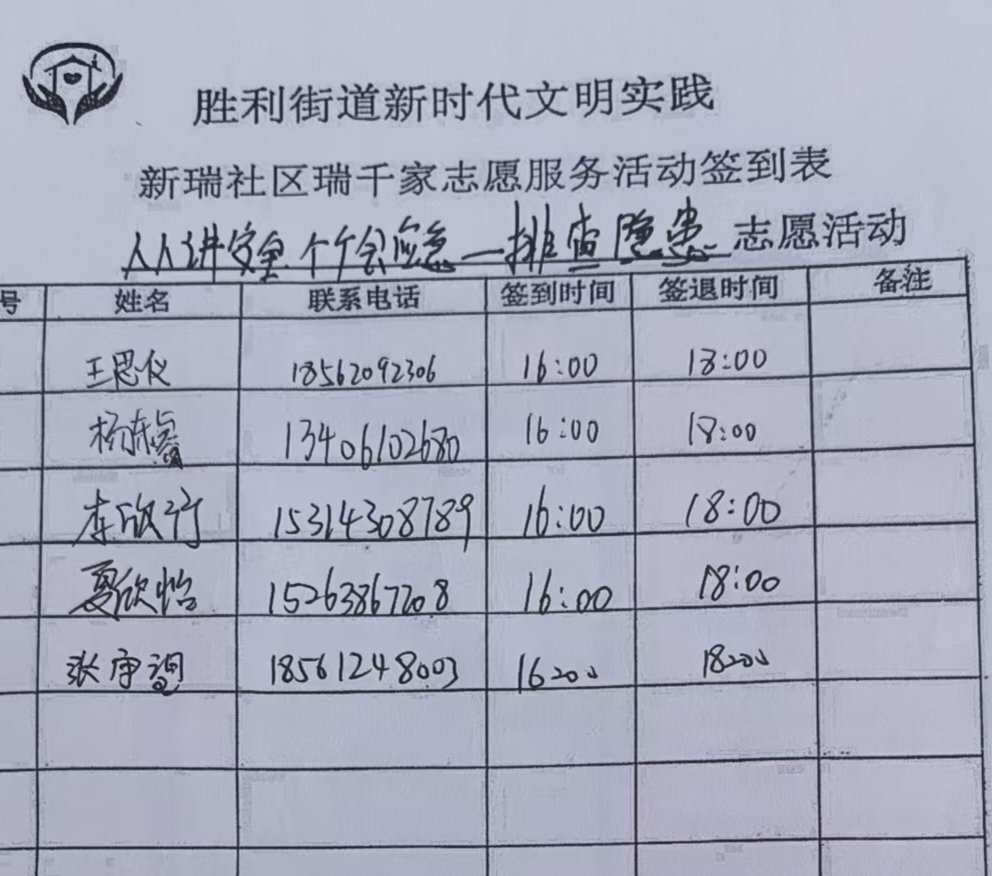 胜利街道新时代文明实践
新瑞社区瑞千家志愿服务活动签到表
人人讲安全 个个会应急—排查隐患 志愿活动
号 姓名 联系电话 签到时间 签退时间 备注
王思仪 18562092306 16:00 18:00
杨东睿 13406102680 16:00 18:00
李欣行 15314308789 16:00 18:00
夏欣怡 15263867208 16:00 18:00
张 18561248003 16:00 18:00